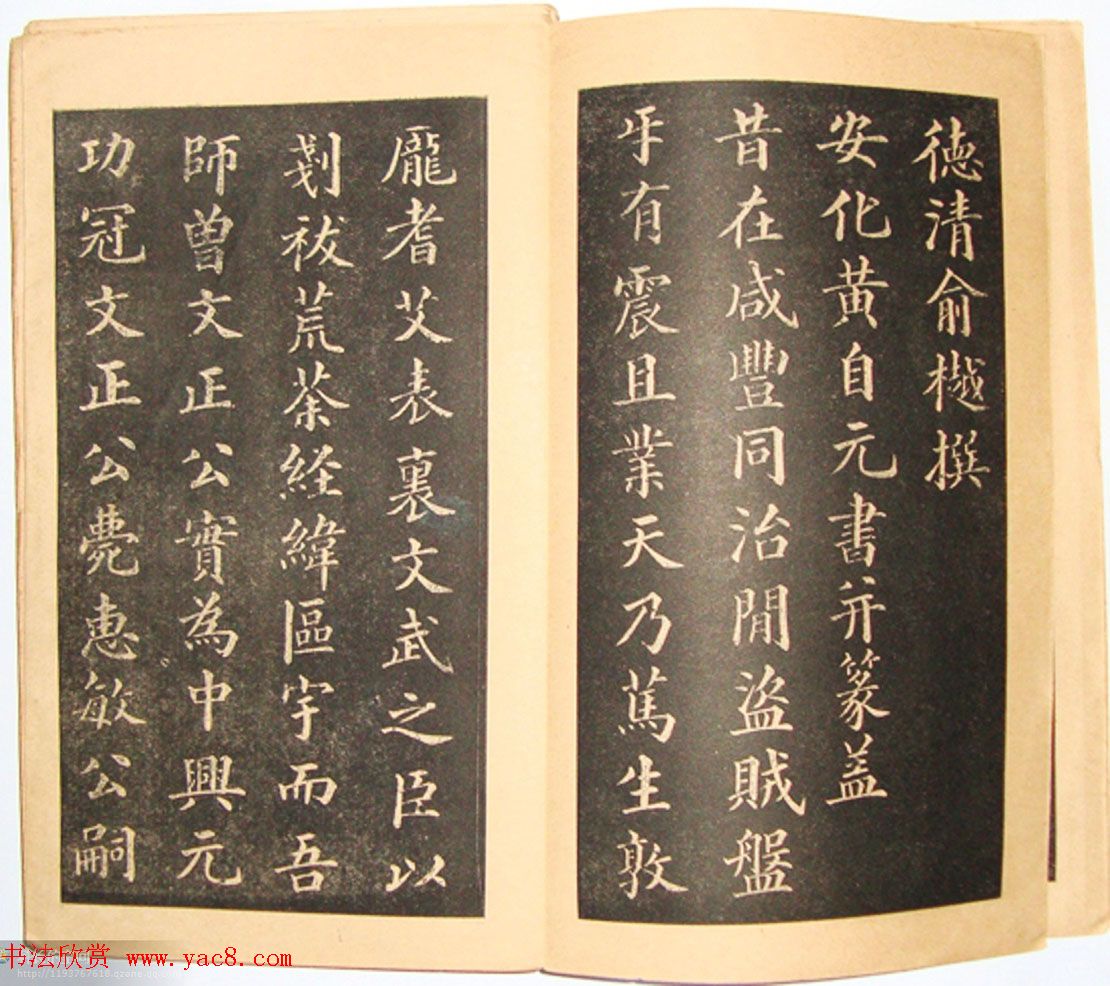 徳清俞樾撰
安化黄自元書并篆盖
昔在咸豐同治閒盗賊盤
牙有震且業天乃篤生敦
龐耆艾表裏文武之臣以
剗祓荒荼経緯區宇而吾
師曽文正公實為中興元
功冠文正公薨惠敏公嗣
书法欣赏 www.yac8.com
http://1193767618.qzone.qq.com